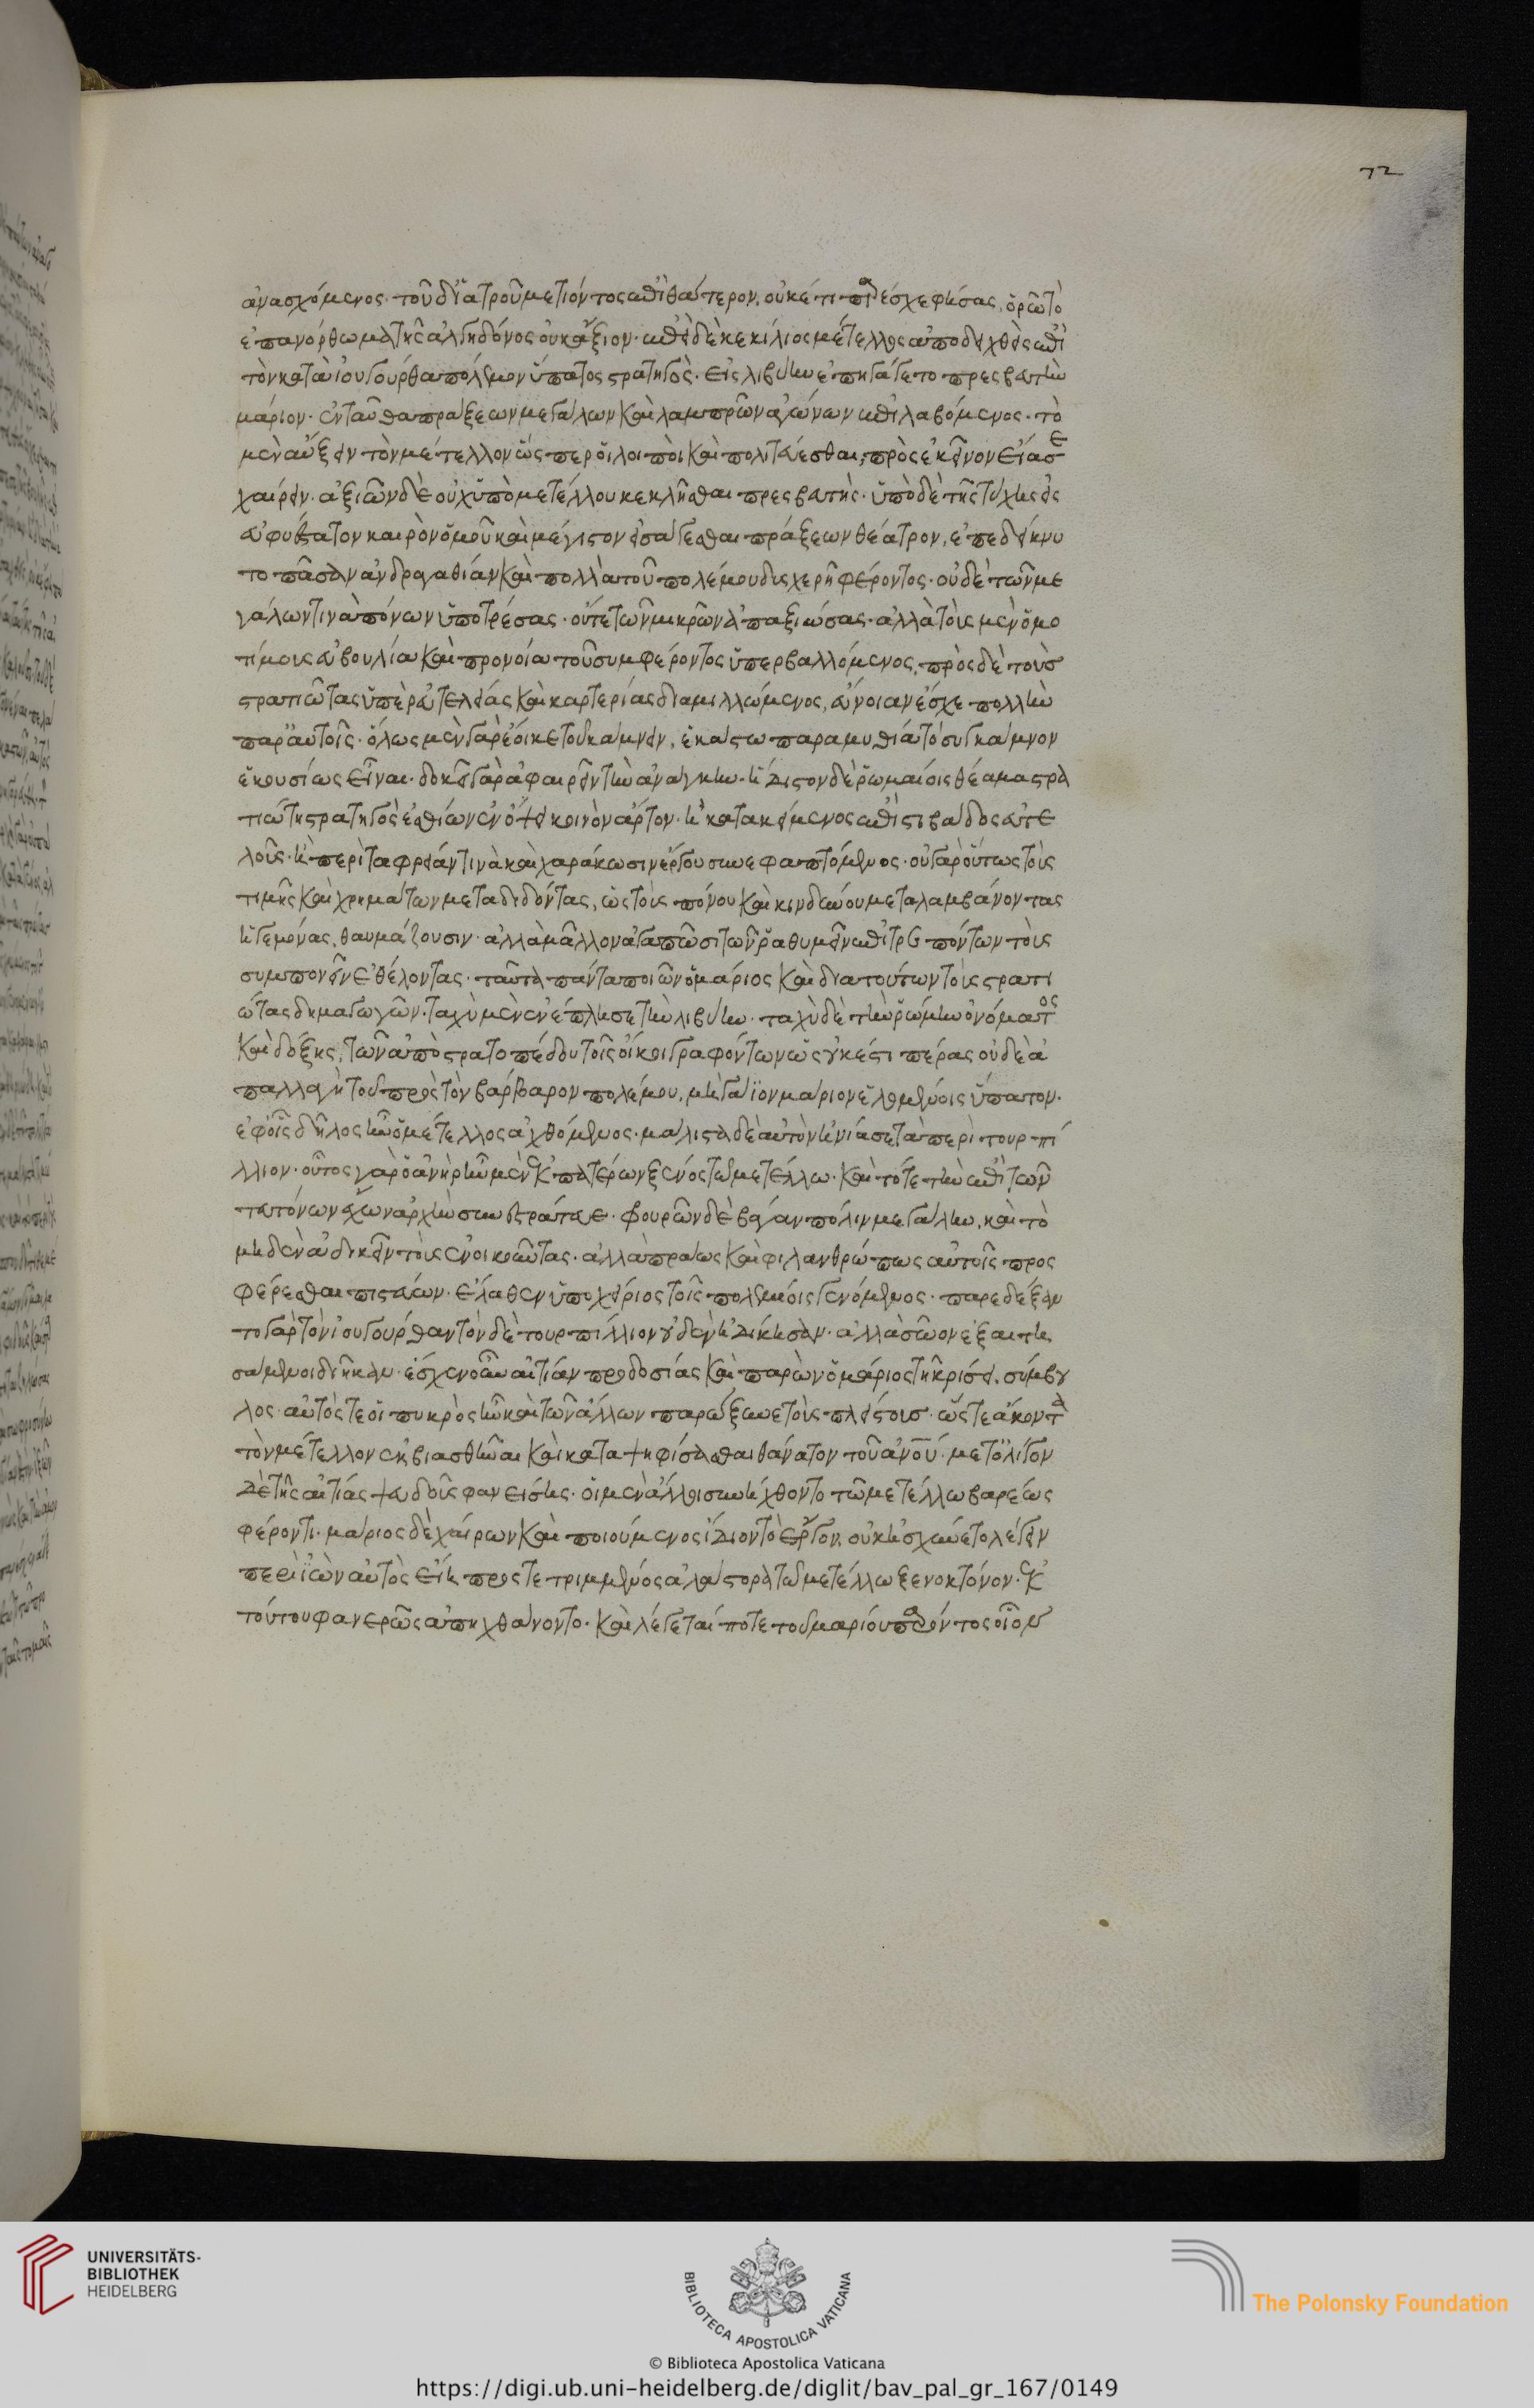 72
ἀνασχόμενος. τοῦ δ' ἰατροῦ μετιόντος ἐπὶ θάτερον, οὐκέτι παρέσχε φήσας, ὁρῶ τὸ
ἐπανόρθωμα τῆς ἀλγηδόνος οὐκ ἄξιον. ἐπεὶ δὲ κεκίλιος μέτελλος ἀποδειχθεὶς ἐπὶ
τὸν κατὰ ἰουγούρθα πόλεμον ὕπατος στρατηγὸς. εἰς λιβύην ἐπηγάγετο πρεσβευτὴν
μάριον. ἐνταῦθα πράξεων μεγάλων καὶ λαμπρῶν ἀγώνων ἐπιλαβόμενος. τὸ
μὲν αὔξειν τὸν μέτελλον ὥσπερ οἱ λοιποὶ καὶ πολιτεύεσθαι, πρὸς ἐκεῖνον εἴασε
χαίρειν. ἀξιῶν δὲ οὐχ ὑπὸ μετέλλου κεκλῆσθαι πρεσβευτής. ὑπὸ δὲ τῆς τύχης εἰς
εὐφυέστατον καιρὸν ὁμοῦ καὶ μέγιστον εἰσάγεσθαι πράξεων θέατρον, ἐπεδείκνυ
το πᾶσαν ἀνδραγαθίαν καὶ πολλὰ τοῦ πολέμου δυσχερῆ φέροντος. οὐδὲ τῶν με
γάλων τινὰ πόνων ὑποτρέσας. οὔτε τῶν μικρῶν ἀπαξιώσας. ἀλλὰ τοὺς μὲν ὁμο
τίμους εὐβουλία καὶ προνοία τοῦ συμφέροντος ὑπερβαλλόμενος, πρὸς δὲ τοὺς
στρατιώτας ὑπὲρ εὐτελείας καὶ καρτερίας διαμιλλώμενος, εὔνοιαν ἔσχε πολλὴν
παρ' αὐτοῖς. ὅλως μὲν γὰρ ἔοικε τοῦ κάμνειν, ἑκάστω παραμυθία τὸ συγκάμνον
ἑκουσίως εἶναι. δοκεῖ γὰρ ἀφαιρεῖν τὴν ἀνάγκην. ἥδιστον δὲ ῥωμαίοις θέαμα στρα
τιώτης στρατηγὸς ἐσθίων ἐν ὄψει κοινὸν ἄρτον. ἢ κατακείμενος ἐπὶ στιβάδος εὐτε
λοῦς. ἢ περὶ ταφρείαν τινὰ καὶ χαράκωσιν ἔργου συνεφαπτόμενος. οὐ γὰρ οὕτως τοὺς
τιμῆς καὶ χρημάτων μεταδιδόντας, ὡς τοὺς πόνου καὶ κινδύνου μεταλαμβάνοντας
ἡγεμόνας, θαυμάζουσιν. ἀλλὰ μᾶλλον ἀγαπῶσι τῶν ῥαθυμεῖν ἐπιτρεπόντων τοὺς
συμπονεῖν ἐθέλοντας. ταῦτα πάντα ποιῶν ὁ μάριος καὶ διὰ τούτων τοὺς στρατι
ώτας δημαγωγῶν. ταχὺ μὲν ἐνέπλησε τὴν λιβύην. ταχὺ δὲ τὴν ῥώμην ὀνόματος
καὶ δόξης, τῶν ἀπὸ στρατοπέδου τοῖς οἴκοι γραφόντων ὡς οὐκ ἔστι πέρας οὐδὲ ἀ
παλλαγὴ τοῦ πρὸς τὸν βάρβαρον πολέμου, μὴ γάϊον μάριον ἑλομένοις ὕπατον.
ἐφ' οἷς δῆλος ἦν ὁ μέτελλος ἀχθόμενος. μάλιστα δὲ αὐτὸν ἠνίασε τὰ περὶ τουρπί
λλιον. οὗτος γὰρ ὁ ἀνὴρ ἦν μὲν ἐκ πατέρων ξένος τῶ μετέλλω. καὶ τότε τὴν ἐπὶ τῶν
τεκτόνων ἔχων ἀρχὴν συνεστράτευε. φρουρῶν δὲ βαγαν πόλιν μεγάλην, καὶ τὸ
μηδὲν ἀδικεῖν τοὺς ἐνοικοῦντας. ἀλλὰ πράως καὶ φιλανθρώπως αὐτοῖς προς
φέρεσθαι πιστεύων. ἔλαθεν ὑποχείριος τοῖς πολεμίοις γενόμενος. παρεδέξαν
το γὰρ τὸν ἰουγούρθαν τὸν δὲ τουρπίλλιον οὐδὲν ἠδίκησαν. ἀλλὰ σῶον ἐξαιτη
σάμενοι διῆκαν. ἔσχεν οὖν αἰτίαν προδοσίας καὶ παρὼν ὁ μάριος τῆ κρίσει, σύμβου
λος αὐτός τε οἱ πικρὸς ἦν καὶ τῶν ἄλλων παρώξυνε τοὺς πλείστους. ὥστε ἄκοντα
τὸν μέτελλον ἐκβιασθῆναι καὶ καταψηφίσασθαι θάνατον τοῦ ἀνου. μετ' ὀλίγον
δὲ τῆς αἰτίας ψευδοῦς φανείσης. οἱ μὲν ἄλλοι συνήχθοντο τῶ μετέλλω βαρέως
φέροντι. μάριος δὲ χαίρων καὶ ποιούμενος ἴδιον τὸ ἔργον, οὐκ ᾐσχύνετο λέγειν
περιϊὼν αὐτὸς εἴη προστετριμμένος ἀλάστορα τῶ μετέλλω ξενοκτόνον. ἐκ
τούτου φανερῶς ἀπηχθάνοντο. καὶ λέγεταί ποτε τοῦ μαρίου παρόντος οἷον
UNIVERSITÄTS-
BIBLIOTHEK
HEIDELBERG
BIBLIOTECA APOSTOLICA VATICANA
The Polonsky Foundation
© Biblioteca Apostolica Vaticana
https://digi.ub.uni-heidelberg.de/diglit/bav_pal_gr_167/0149